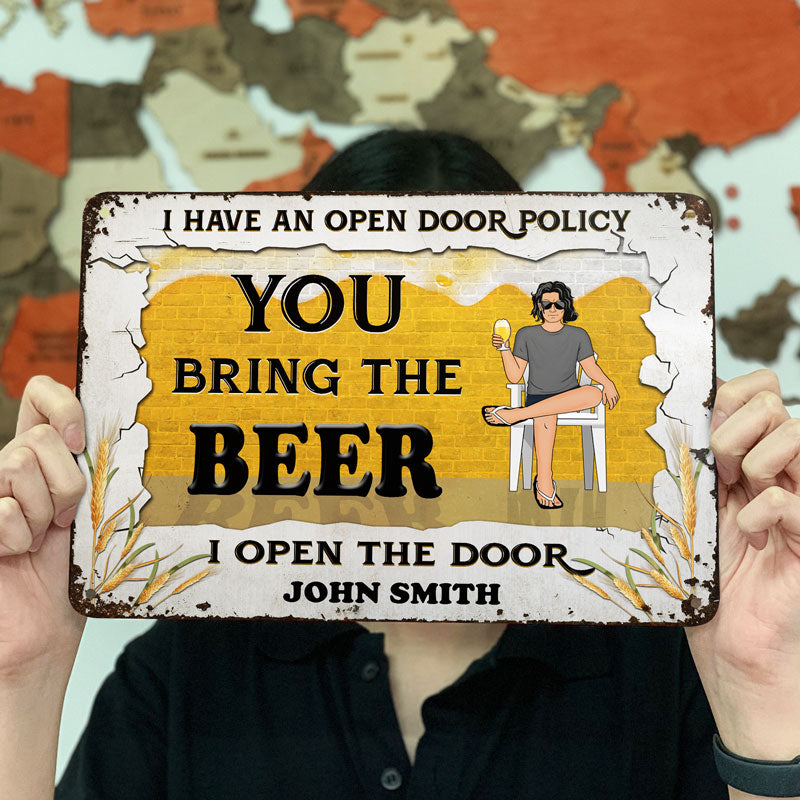 I HAVE AN OPEN DOOR POLICY
YOU
BRING THE
BEER
I OPEN THE DOOR
JOHN SMITH